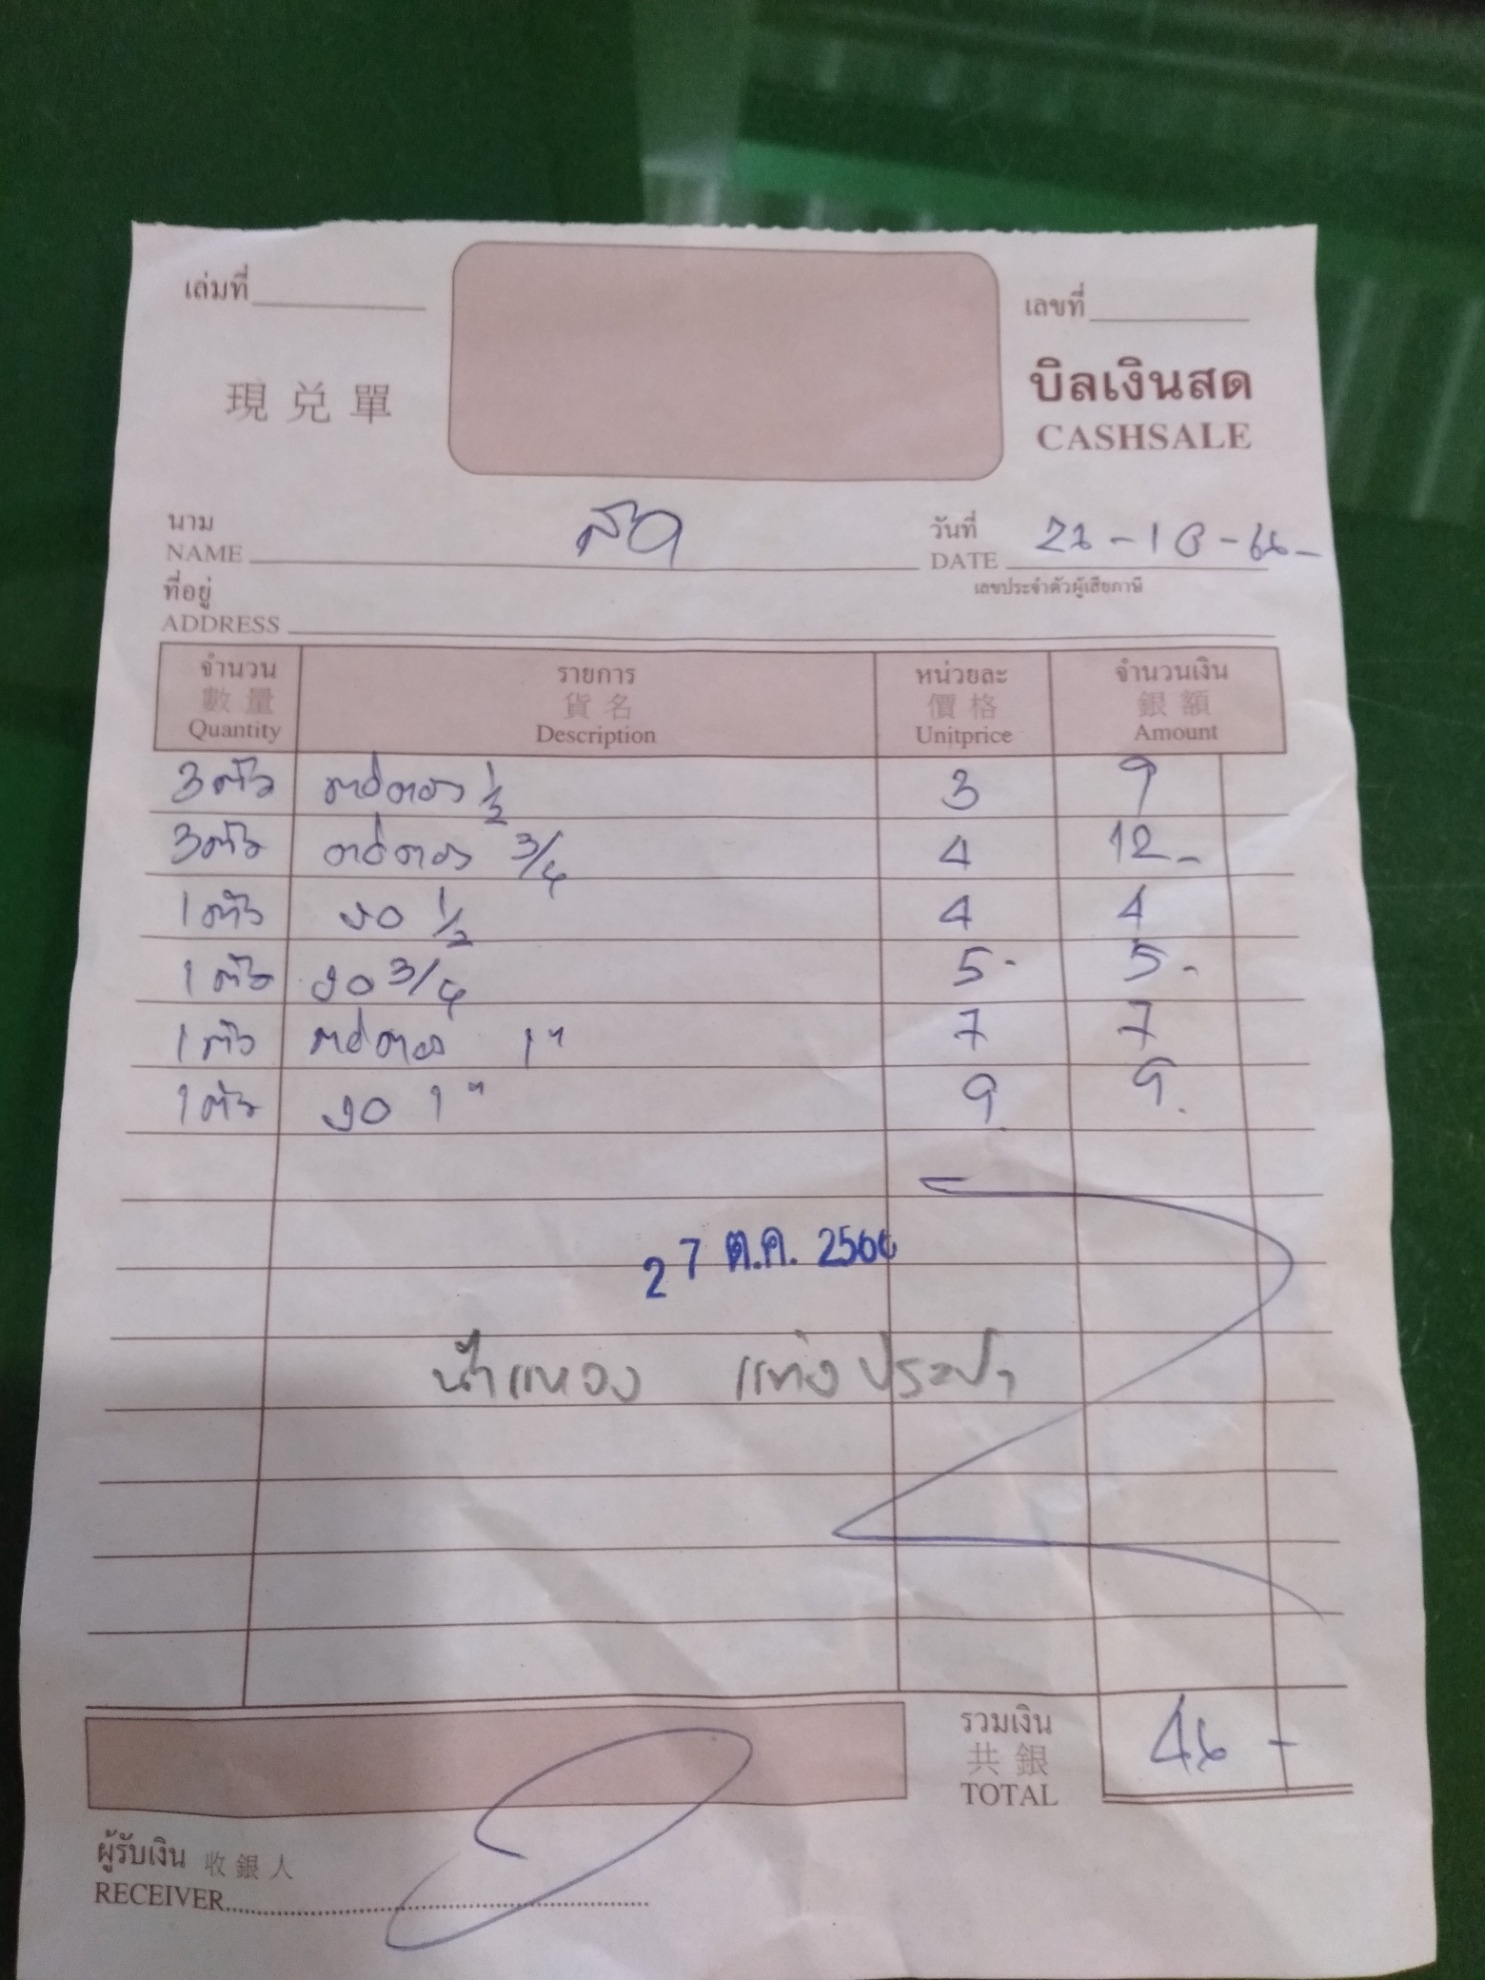 เล่มที่ เลขที่
現兌單 บิลเงินสด
CASHSALE
นาม สด วันที่ 26-10-66-
NAME DATE
ที่อยู่ เลขประจำตัวผู้เสียภาษี
ADDRESS
จำนวน รายการ หน่วยละ จำนวนเงิน
數量 貨名 價格 銀額
Quantity Description Unitprice Amount
3ตัว ต่อตรง 1/2 3 9
3ตัว ต่อตรง 3/4 4 12-
1ตัว งอ 1/2 4 4
1ตัว งอ 3/4 5- 5-
1ตัว ต่อตรง 1" 7 7
1ตัว งอ 1" 9 9
27 ต.ค. 2566
ประปา
รวมเงิน 46-
共銀
TOTAL
ผู้รับเงิน 收銀人
RECEIVER